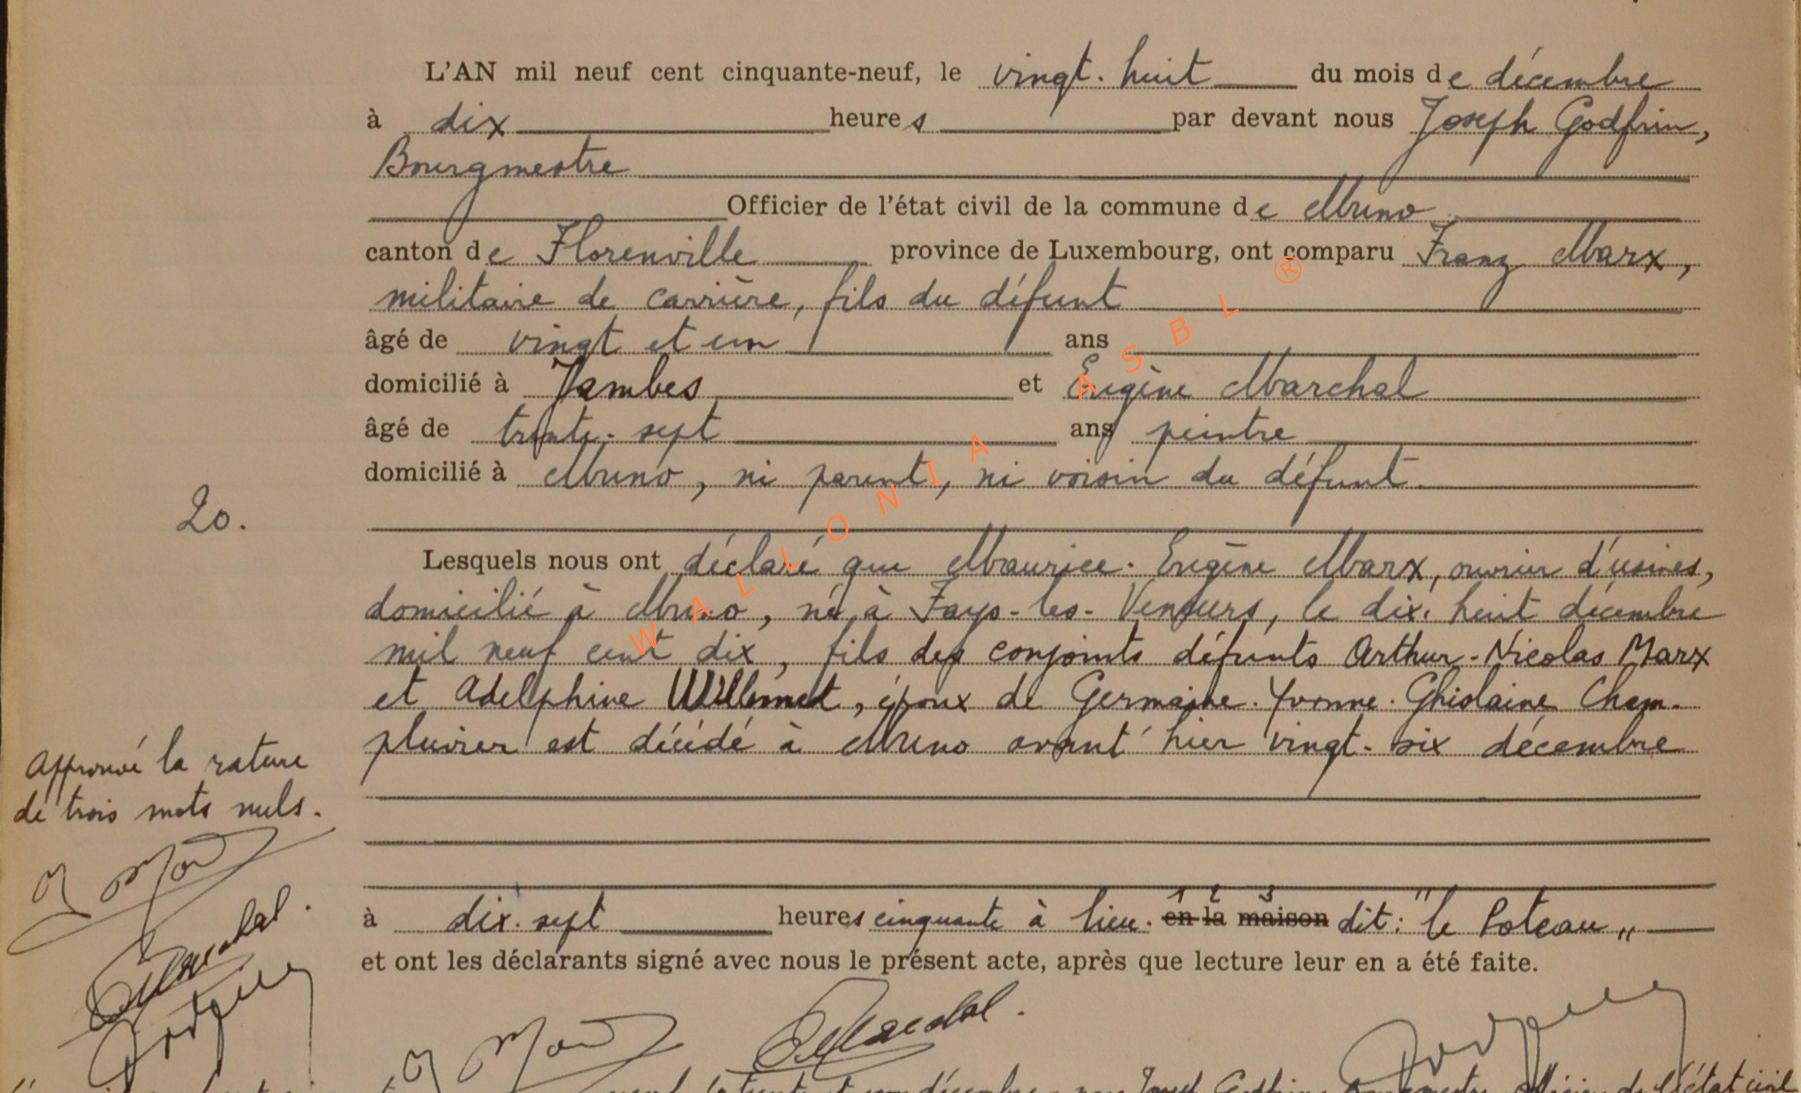 L'AN mil neuf cent cinquante-neuf, le vingt-huit du mois de décembre
à dix heures par devant nous Joseph Godfrin,
Bourgmestre
Officier de l'état civil de la commune de Muno
canton de Florenville province de Luxembourg, ont comparu Franz Marx,
militaire de carrière, fils du défunt
âgé de vingt et un ans
domicilié à Jambes et Eugène Marchal
âgé de trente-sept ans peintre
domicilié à Muno, ni parent, ni voisin du défunt.
20.
Lesquels nous ont déclaré que Maurice-Eugène Marx, ouvrier d'usines,
domicilié à Muno, né à Fays-les-Veneurs, le dix-huit décembre
mil neuf cent dix, fils des conjoints défunts Arthur-Nicolas Marx
et Adelphine Willemet, époux de Germaine-Yvonne-Ghislaine Cham-
pluvier est décédé à Muno avant-hier vingt-six décembre
Approuvé la rature
de trois mots nuls.
à dix-sept heures cinquante à lieu- en la maison dit: "le Poteau"
1 2 3
et ont les déclarants signé avec nous le présent acte, après que lecture leur en a été faite.
EMarchal.
Godfrin
EMarchal.
Godfrin
WALLONIA ASBL ®